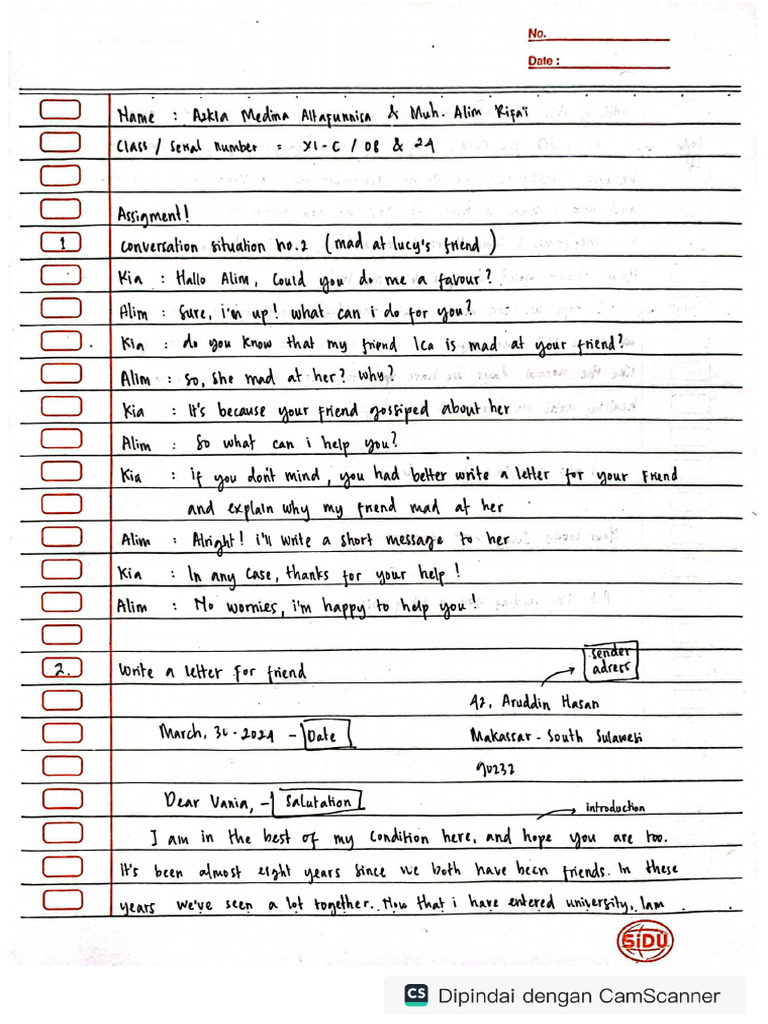 No.
Date :
Name : Azkia Medina Altafunnisa & Muh. Alim Rifa'i
Class / Serial Number : XI-C / 08 & 24
Assigment!
1 Conversation situation no.2 (mad at lucy's friend)
Kia : Hallo Alim, Could you do me a favour?
Alim : Sure, i'm up! what can i do for you?
Kia : do you know that my friend Ica is mad at your friend?
Alim : So, she mad at her? why?
Kia : It's because your friend gossiped about her
Alim : So what can i help you?
Kia : if you don't mind, you had better write a letter for your friend
and explain why my friend mad at her
Alim : Alright! i'll write a short message to her
Kia : In any case, thanks for your help!
Alim : No worries, i'm happy to help you!
2. Write a letter for friend
sender
adress
42, Aruddin Hasan
March, 2024 - Date
Makassar - South Sulawesi
90232
Dear Vania, - Salutation
introduction
I am in the best of my condition here, and hope you are too.
It's been almost eight years since we both have been friends. In these
years we've seen a lot together. Now that i have entered university, Iam
SiDU
CS Dipindai dengan CamScanner